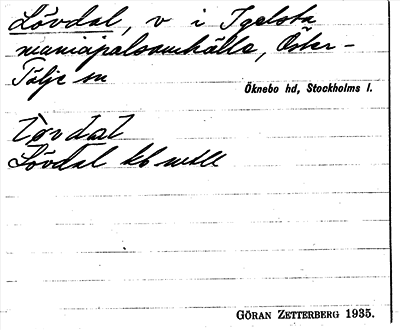 Lövdal, v i Igelsta
municipalsamhälle, Öster-
Tälje sn
Öknebo hd, Stockholms l.
Lövdal kb
GÖRAN ZETTERBERG 1935.